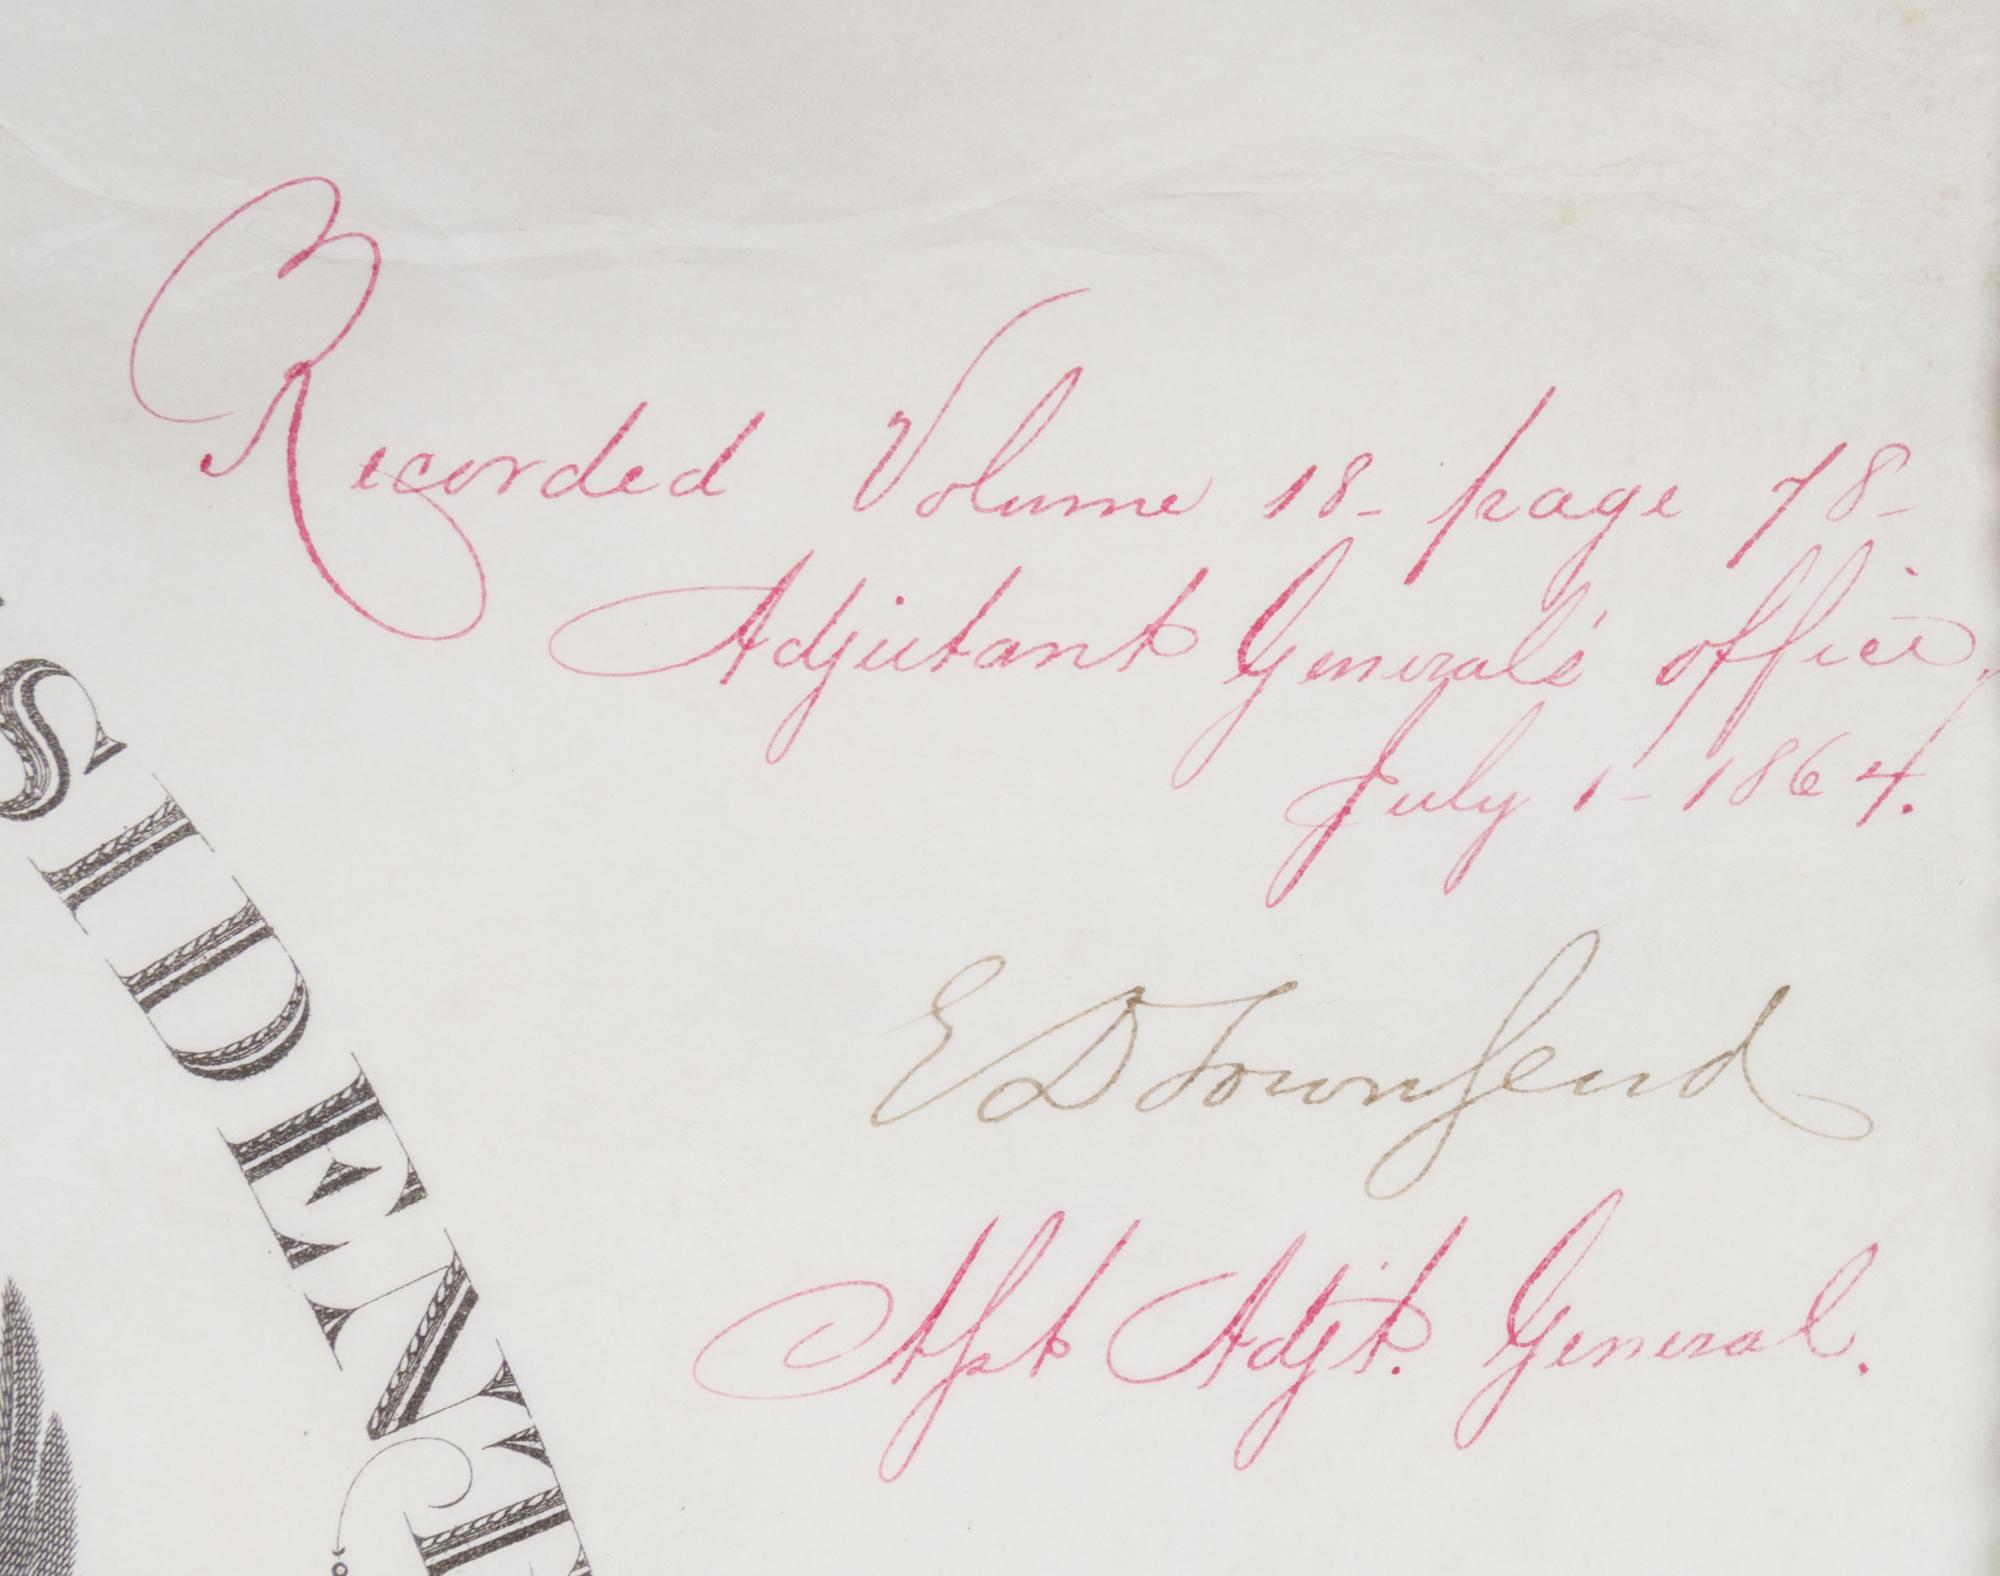 Recorded Volume 18- page 78-
Adjutant General's office,
July 1- 1864.
E D Townsend
Asst Adjt. General.
SIDENT